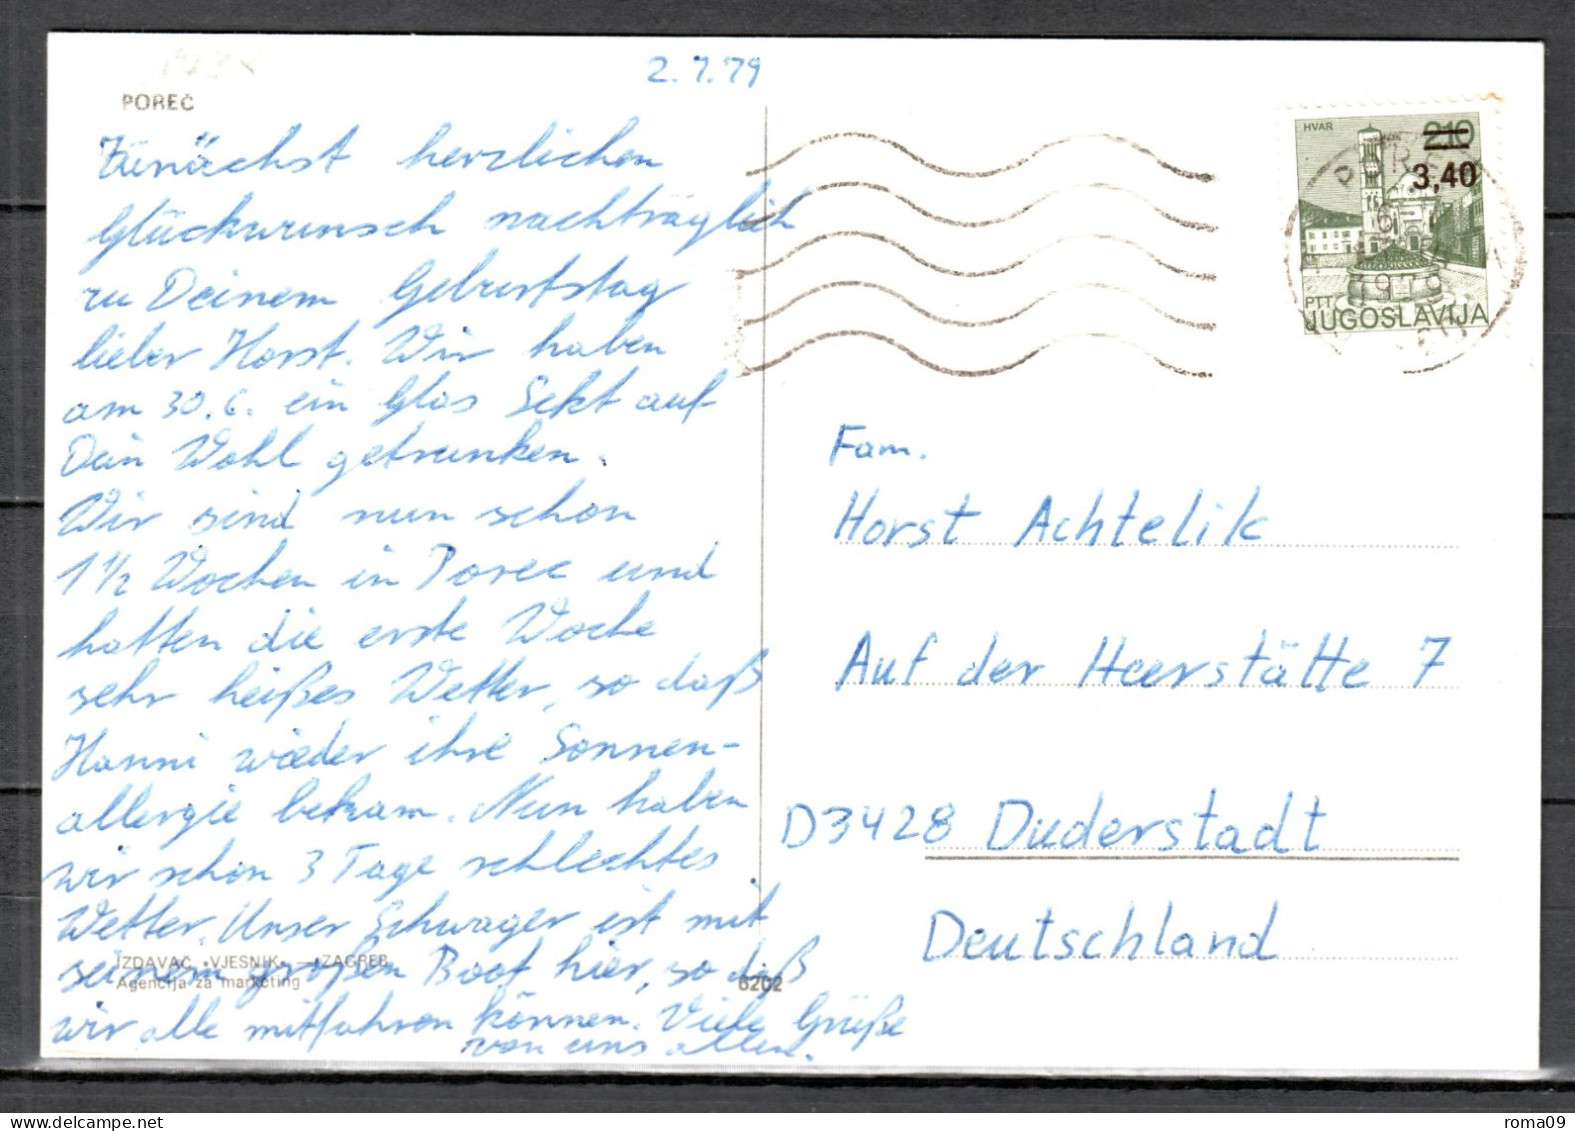 2.7.79
POREČ
Zunächst herzlichen
Glückwunsch nachträglich
zu Deinem Geburtstag
lieber Horst. Wir haben
am 30.6. ein Glas Sekt auf
Dein Wohl getrunken.
Wir sind nun schon
1 1/2 Wochen in Porec und
hatten die erste Woche
sehr heißes Wetter, so daß
Hanni wieder ihre Sonnen-
allergie bekam. Nun haben
wir schon 3 Tage schlechtes
Wetter. Unser Schwager ist mit
seinem großen Boot hier, so daß
wir alle mitfahren können. Viele Grüße
von uns allen.
IZDAVAČ »VJESNIK« — ZAGREB
Agencija za marketing
6202
HVAR
210
3,40
PTT
JUGOSLAVIJA
1979
Fam.
Horst Achtelik
Auf der Heerstätte 7
D3428 Duderstadt
Deutschland
roma09